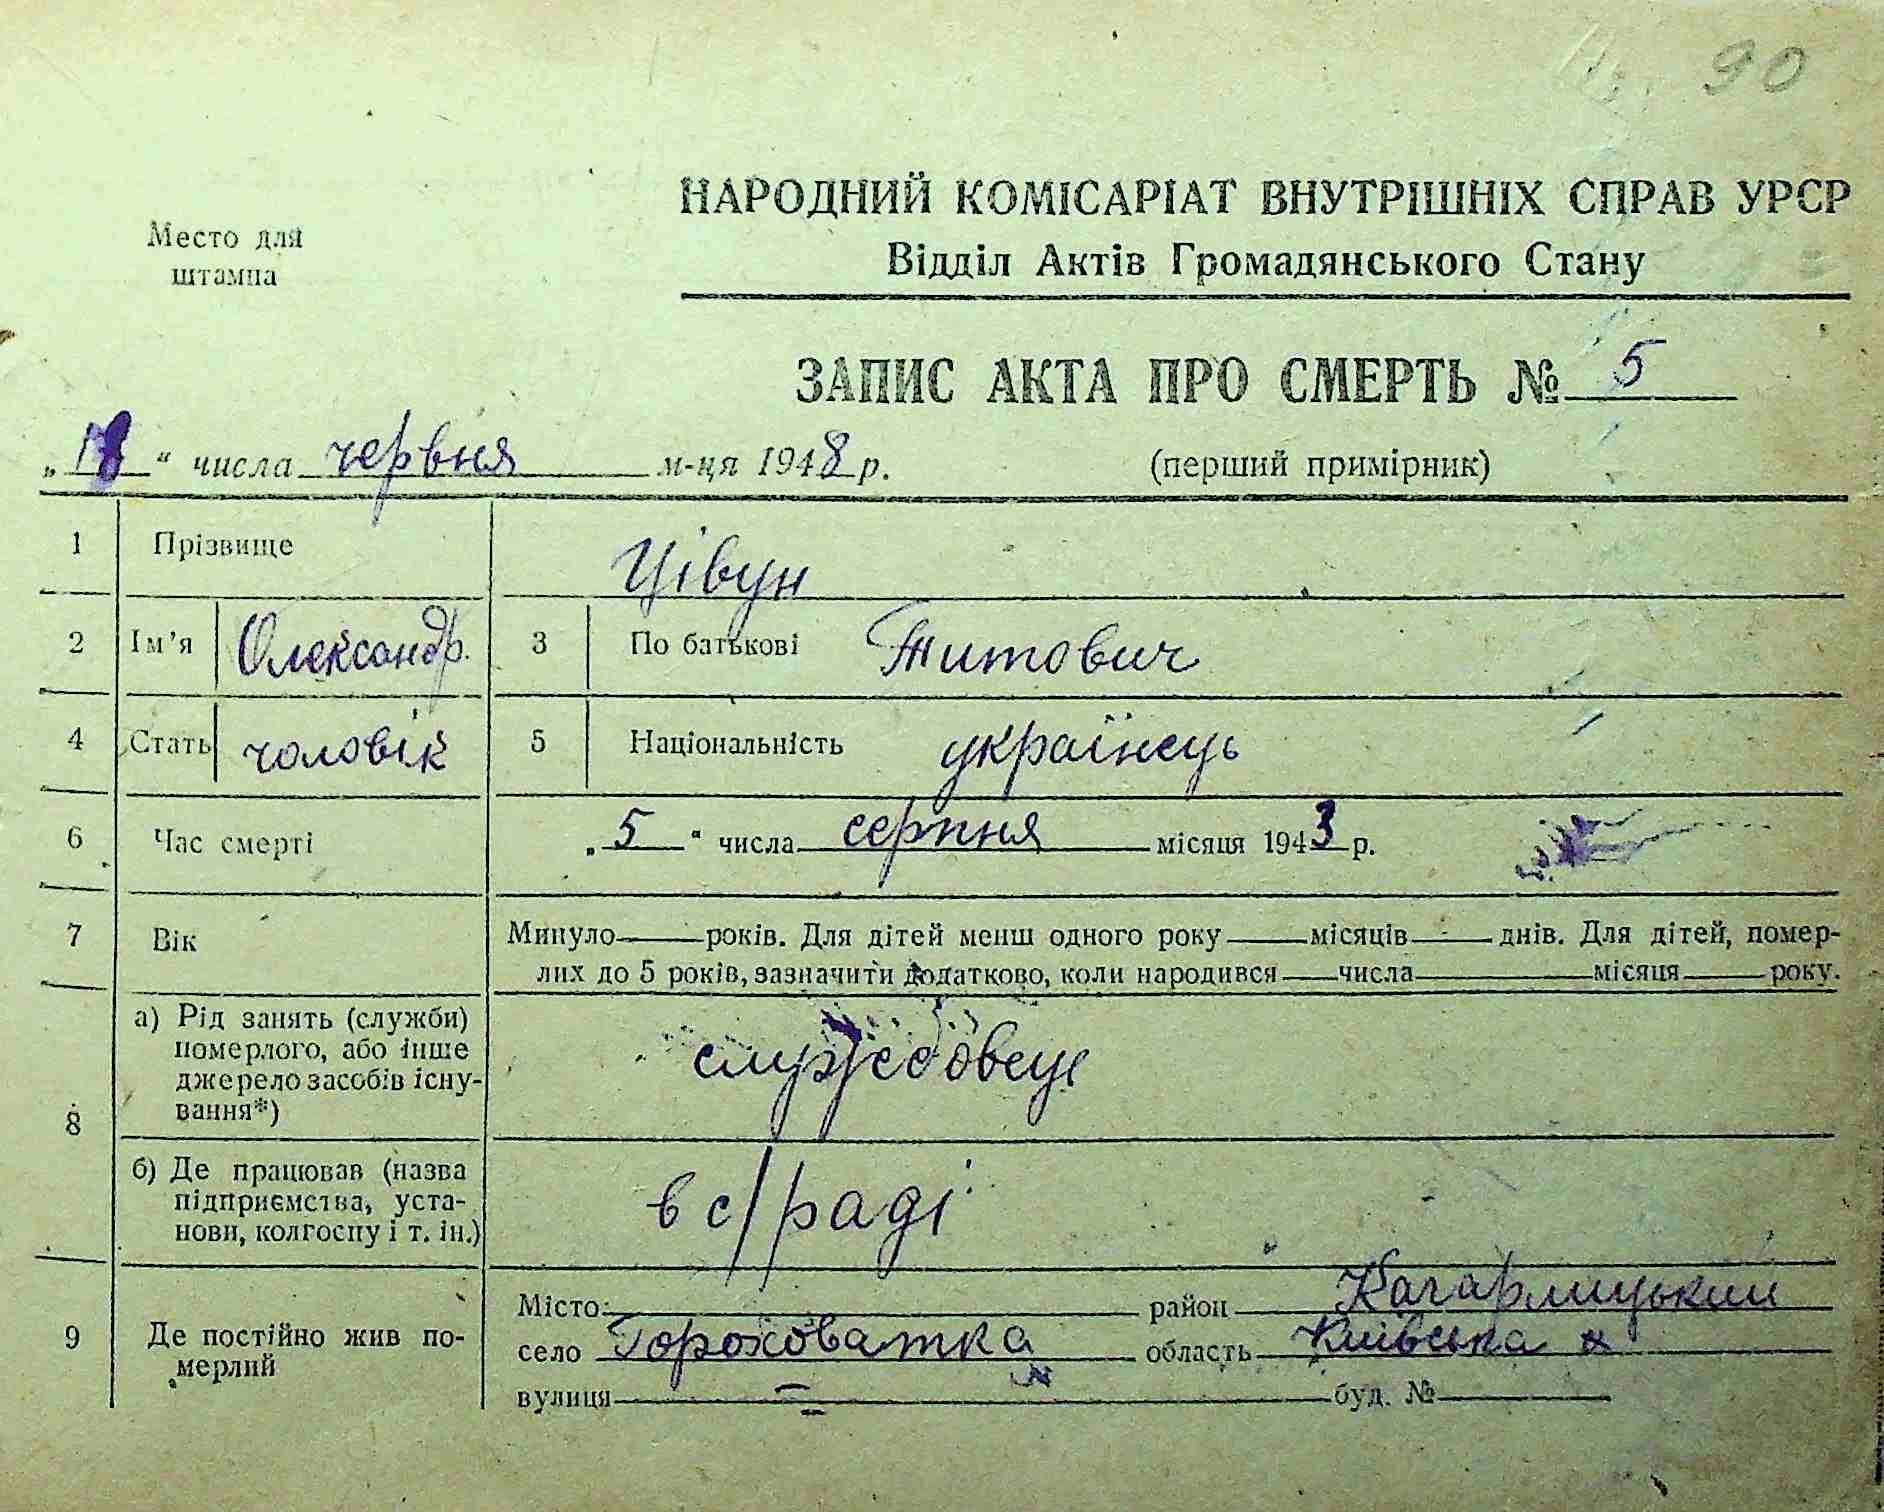 90
Место для
штампа
НАРОДНИЙ КОМІСАРІАТ ВНУТРІШНІХ СПРАВ УРСР
Відділ Актів Громадянського Стану
ЗАПИС АКТА ПРО СМЕРТЬ № 5
„18“ числа червня м-ця 1948 р. (перший примірник)
1 Прізвище Цівун
2 Ім'я Олександр. 3 По батькові Титович
4 Стать чоловік 5 Національність українець
6 Час смерті „5“ числа серпня місяця 1943 р.
7 Вік Минуло — років. Для дітей менш одного року — місяців — днів. Для дітей, помер-
лих до 5 років, зазначити додатково, коли народився — числа — місяця — року.
8 а) Рід занять (служби)
померлого, або інше
джерело засобів існу-
вання*)
службовець
б) Де працював (назва
підприємства, уста-
нови, колгоспу і т. ін.)
в с/раді
9 Де постійно жив по-
мерлий
Місто район Кагарлицький
село Гороховатка область Київська
вулиця — буд. №